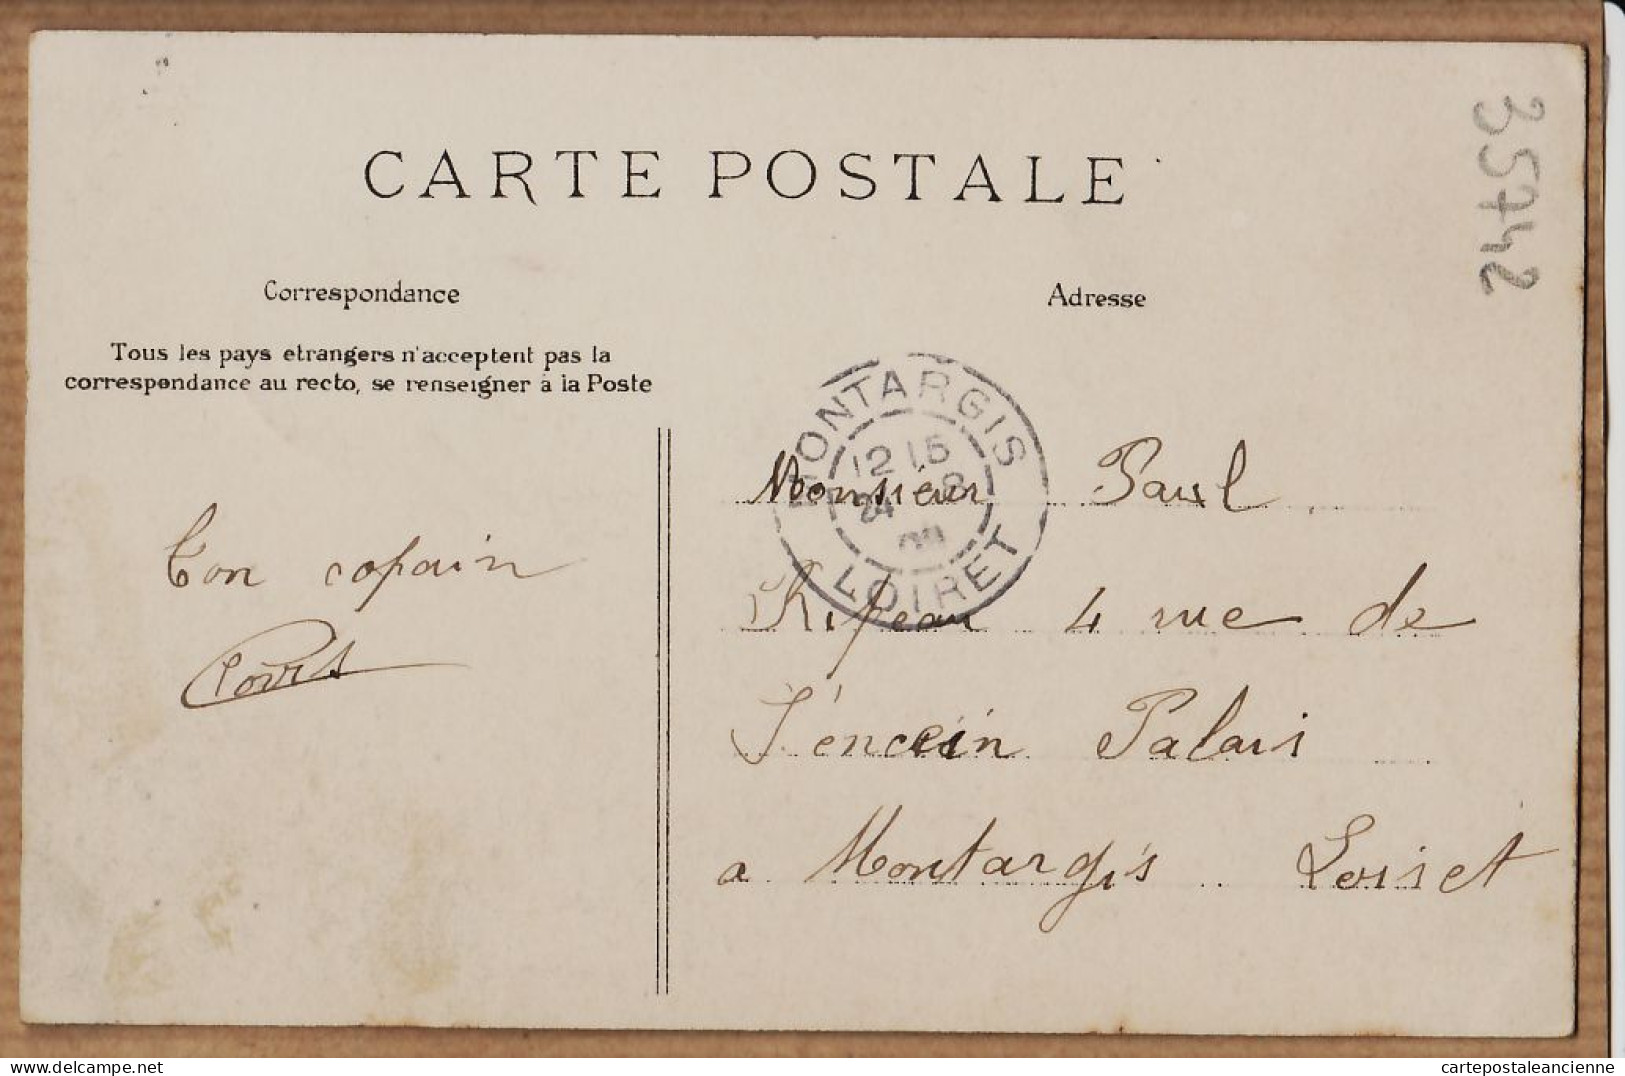 35742
CARTE POSTALE
Correspondance
Adresse
Tous les pays etrangers n'acceptent pas la
correspondance au recto, se renseigner à la Poste
MONTARGIS
12 15
24 8
09
LOIRET
Monsieur Paul
4 rue de
Palais
a Montargis Loiret
Ton copain
cartepostaleancienne
www.delcampe.net